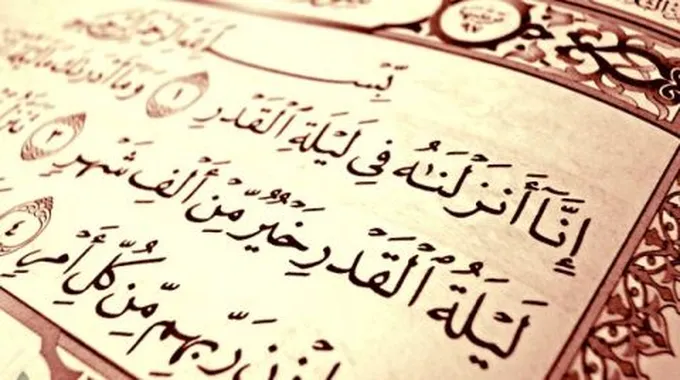 بِسْمِ ٱللَّهِ ٱلرَّحْمَٰنِ ٱلرَّحِيمِ
إِنَّآ أَنزَلْنَٰهُ فِى لَيْلَةِ ٱلْقَدْرِ ١ وَمَآ أَدْرَىٰكَ مَا
لَيْلَةُ ٱلْقَدْرِ خَيْرٌ مِّنْ أَلْفِ شَهْرٍ ٣
رَبِّهِم مِّن كُلِّ أَمْرٍ ٤